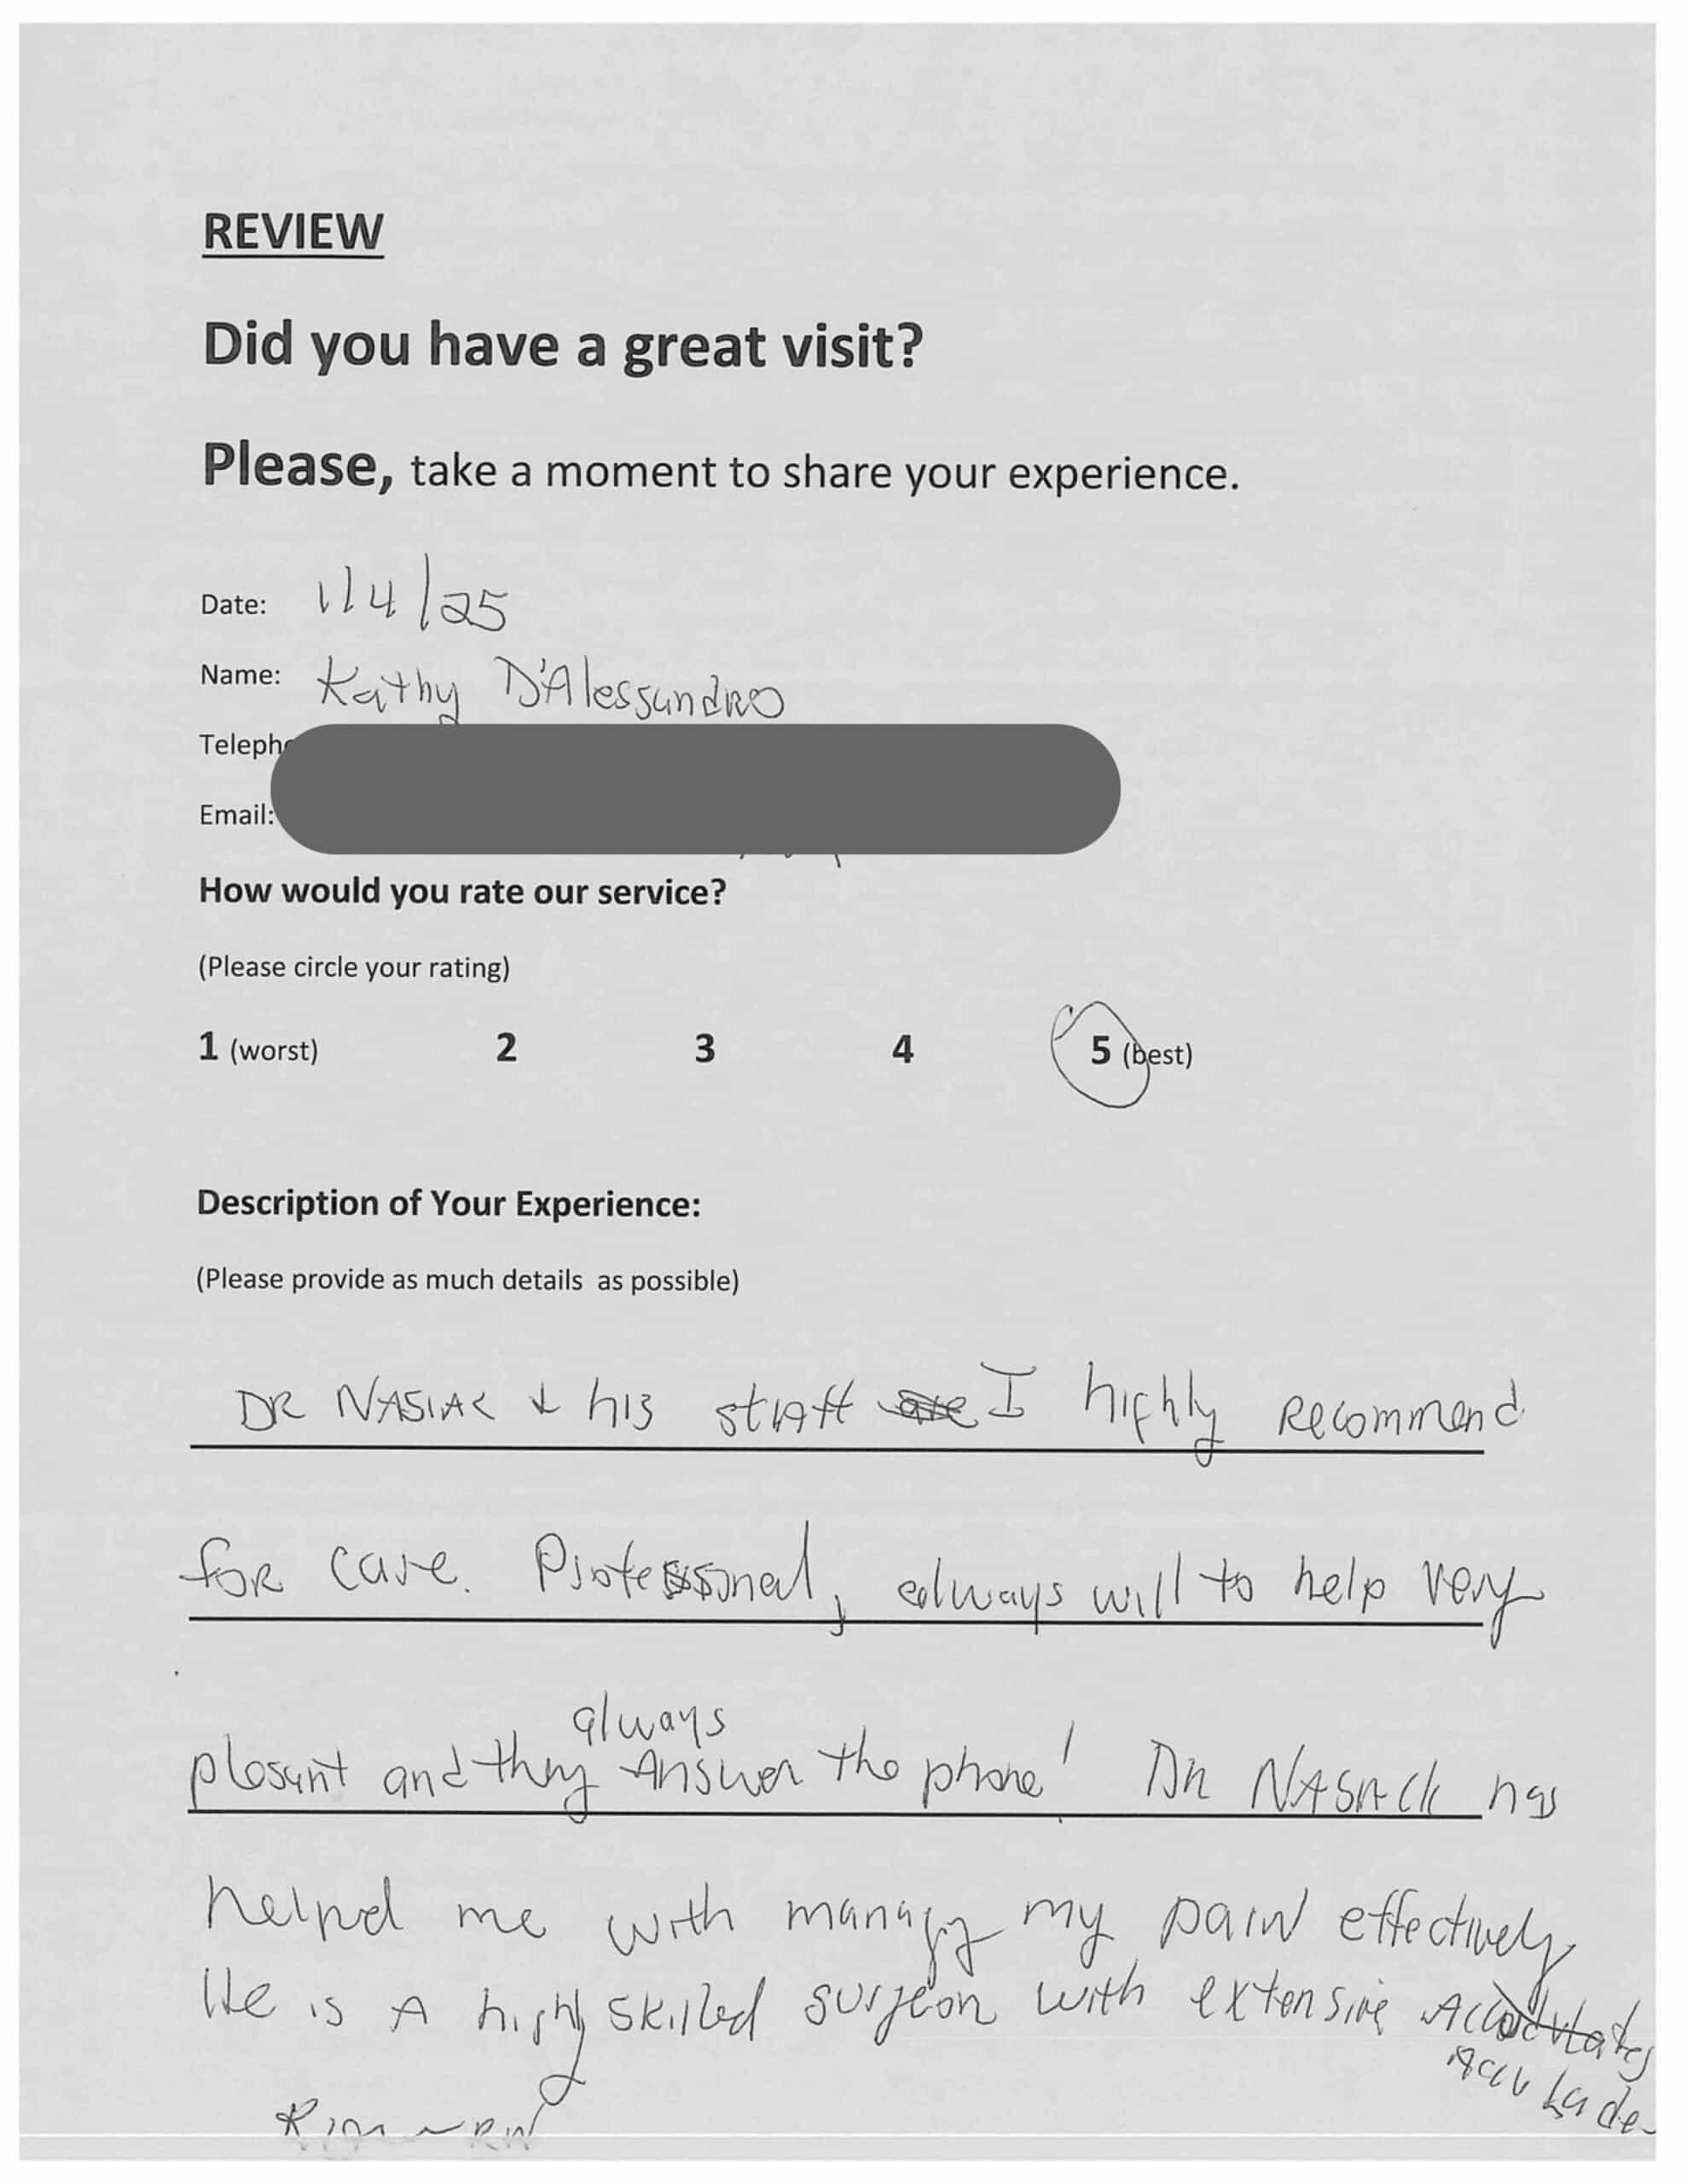 REVIEW
Did you have a great visit?
Please, take a moment to share your experience.
Date: 1/4/25
Name: Kathy D'Alessandro
Teleph
Email:
How would you rate our service?
(Please circle your rating)
1 (worst) 2 3 4 5 (best)
Description of Your Experience:
(Please provide as much details as possible)
DR NASIAK & his staff are I highly recommend
for care. Professional, always will to help very
always
plesant and they Answer the phone! Dr NASACK has
helped me with managing my pain effectively
He is A highly skilled surgeon with extensive